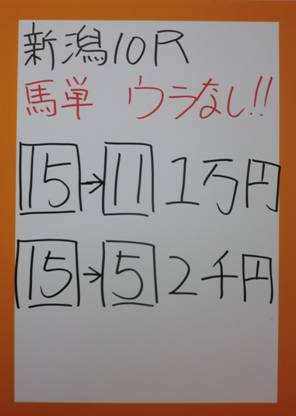 新潟10R
馬単 ウラなし!!
15→11 1万円
15→5 2千円